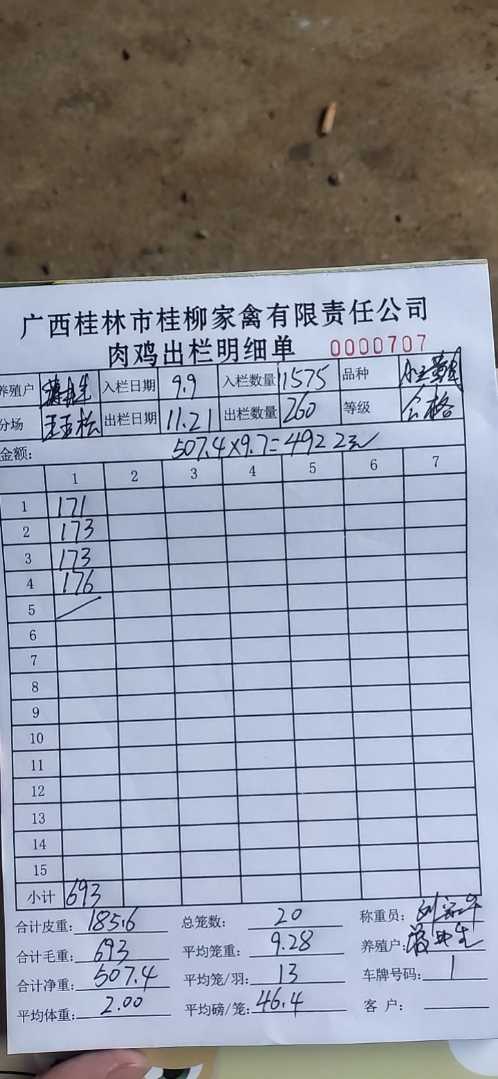 广西桂林市桂柳家禽有限责任公司
肉鸡出栏明细单 0000707
养殖户 入栏日期 9.9 入栏数量 11575 品种
分场 出栏日期 11.21 出栏数量 260 等级 合格
金额: 507.4×9.7=4922元
1 2 3 4 5 6 7
1 171
2 173
3 173
4 176
5
6
7
8
9
10
11
12
13
14
15
小计 693
合计皮重: 185.6 总笼数: 20 称重员:
合计毛重: 693 平均笼重: 9.28 养殖户:
合计净重: 507.4 平均笼/羽: 13 车牌号码: 1
平均体重: 2.00 平均磅/笼: 46.4 客 户: